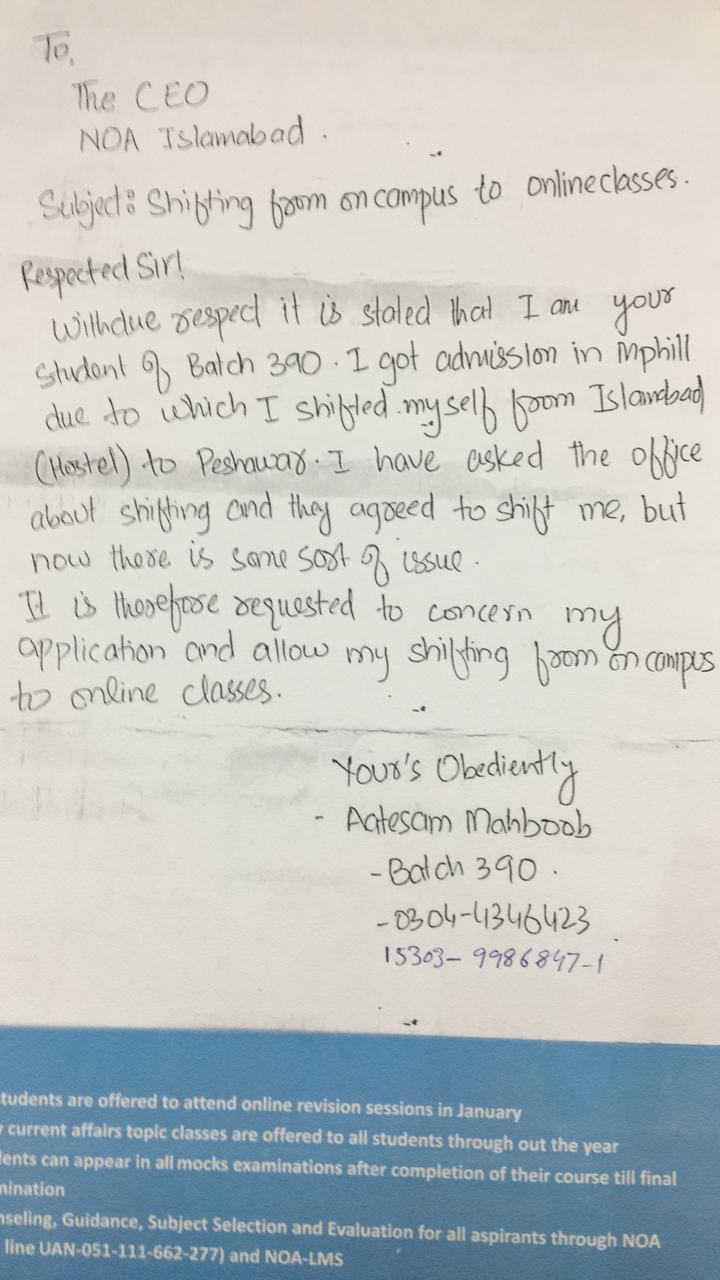 To,
The CEO
NOA Islamabad.
Subject: Shifting from on campus to online classes.
Respected Sir!
With due respect it is stated that I am your
Student of Batch 390. I got admission in Mphill
due to which I shifted myself from Islambad
(Hostel) to Peshawar. I have asked the office
about shifting and they agreed to shift me, but
now there is some sort of issue.
It is therefore requested to concern my
application and allow my shifting from on campus
to online classes.
Your's Obediently
- Aatesam Mahboob
- Batch 390.
- 0304-4346423
15303-9986847-1
tudents are offered to attend online revision sessions in January
current affairs topic classes are offered to all students through out the year
ents can appear in all mocks examinations after completion of their course till final
mination
nseling, Guidance, Subject Selection and Evaluation for all aspirants through NOA
line UAN-051-111-662-277) and NOA-LMS